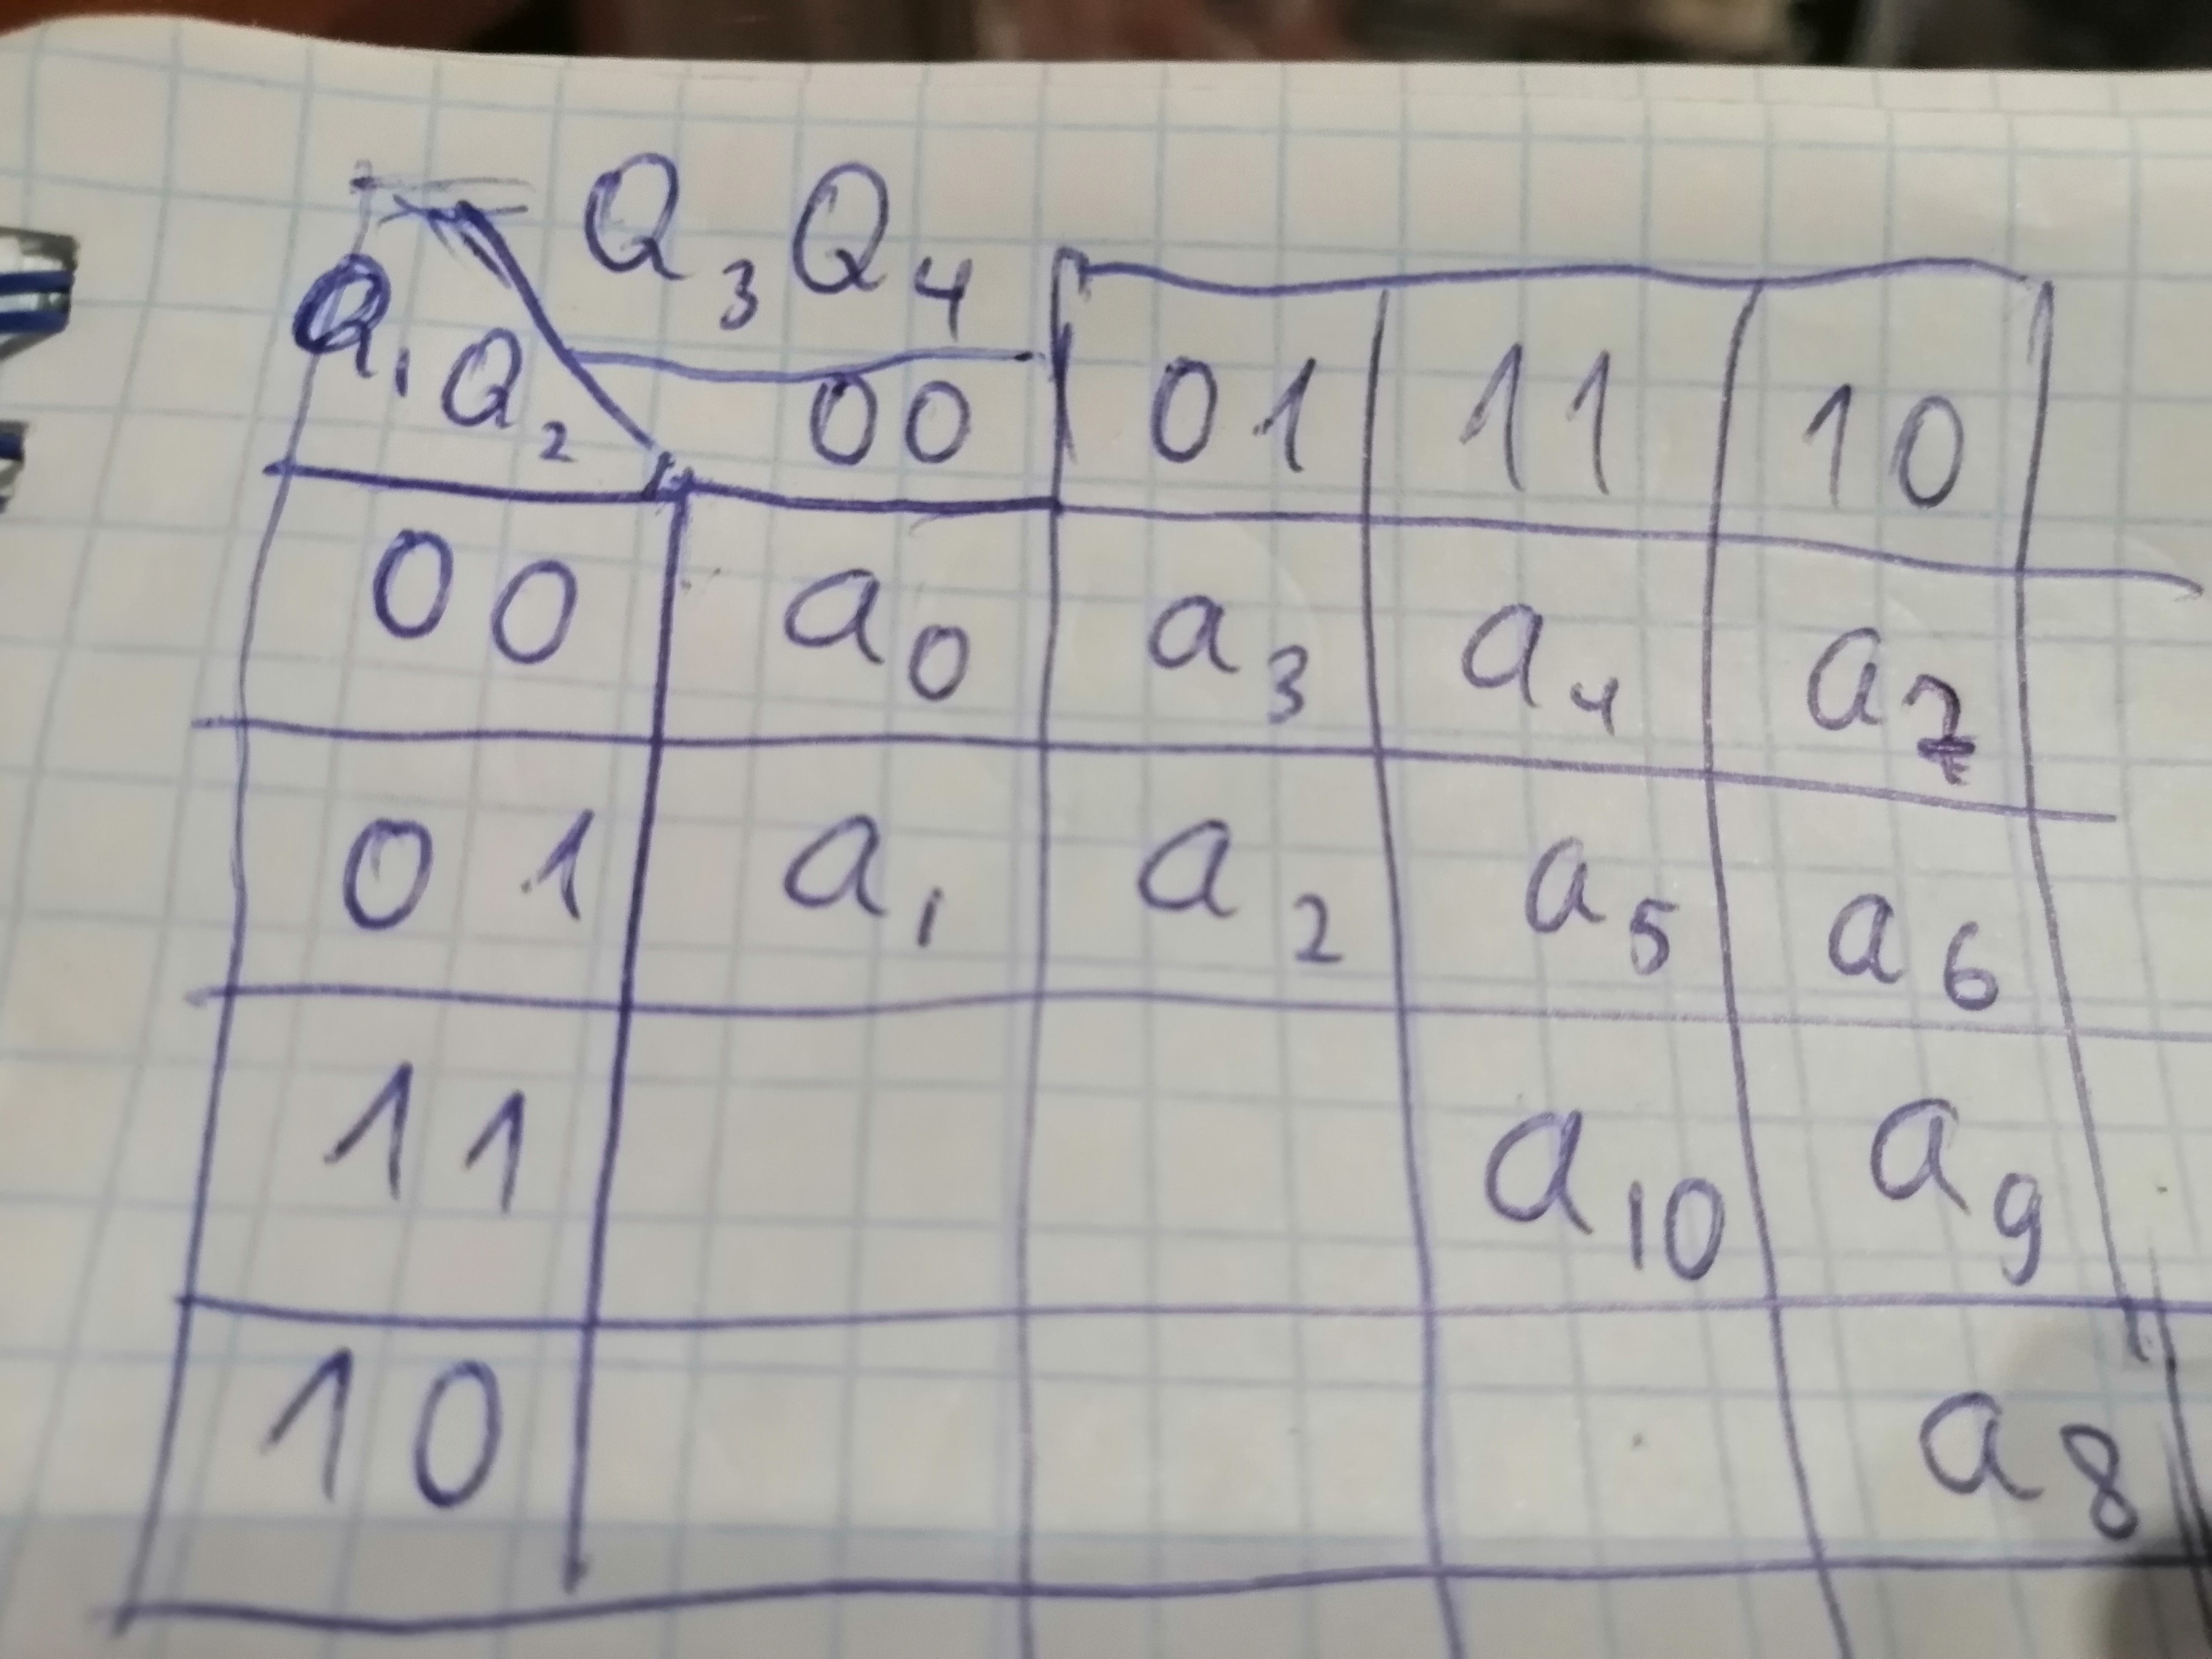 Q₃Q₄
Q₁Q₂ 00 01 11 10
00 a₀ a₃ a₄ a₇
01 a₁ a₂ a₅ a₆
11 a₁₀ a₉
10 a₈